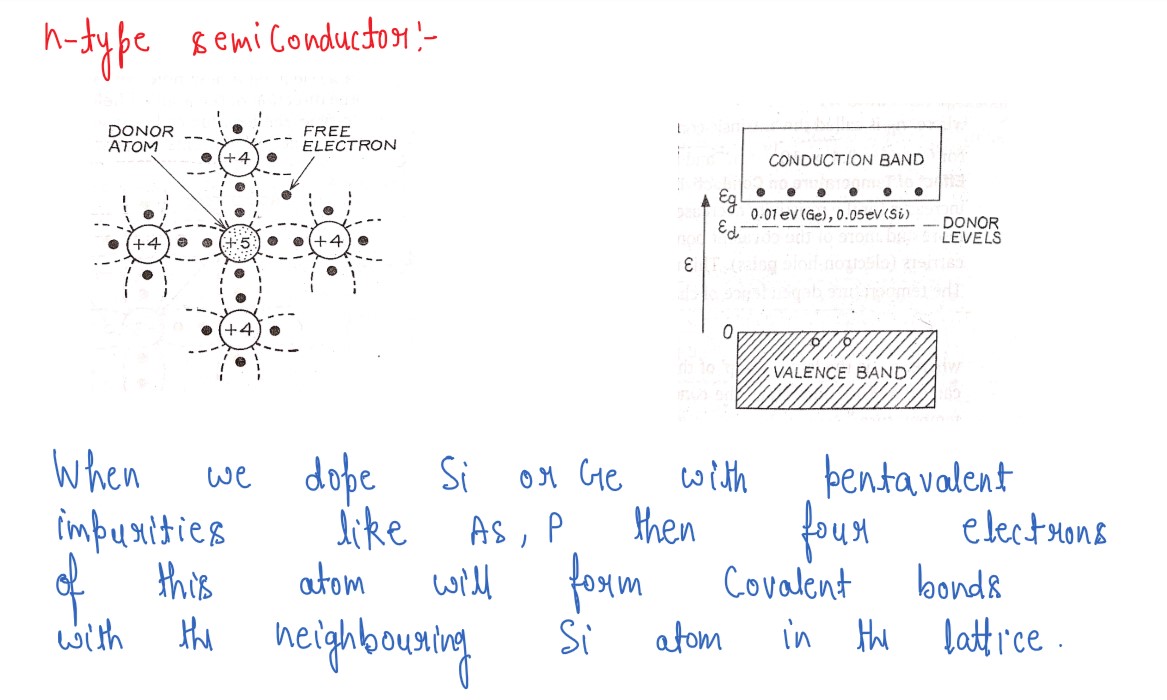 n-type semiConductor:-
DONOR ATOM
FREE ELECTRON
+4
+4
+5
+4
+4
CONDUCTION BAND
εg
0.01 eV (Ge), 0.05 eV (Si)
εd
DONOR LEVELS
ε
0
VALENCE BAND
When we dope Si or Ge with pentavalent
impurities like As, P then four electrons
of this atom will form Covalent bonds
with the neighbouring Si atom in the lattice.